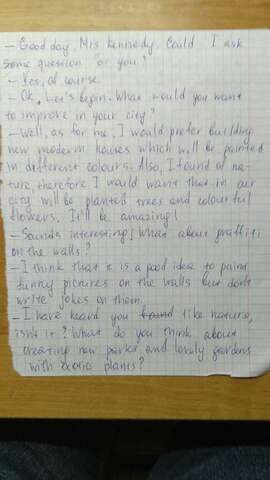 - Good day, Mrs Kennedy. Could I ask
some question of you?
- Yes, of course.
- Ok. Let's begin. What would you want
to improve in your city?
- Well, as for me, I would prefer building
new modern houses which will be painted
in different colours. Also, I found of na-
ture, therefore I would want that in our
city will be planted trees and colourful
flowers. It'll be amazing!
- Sounds interesting! What about graffiti
on the walls?
- I think that it is a good idea to paint
funny pictures on the walls but don't
write jokes on them.
- I have heard you found like nature,
isn't it? What do you think about
creating new parks and lovely gardens
with exotic plants?